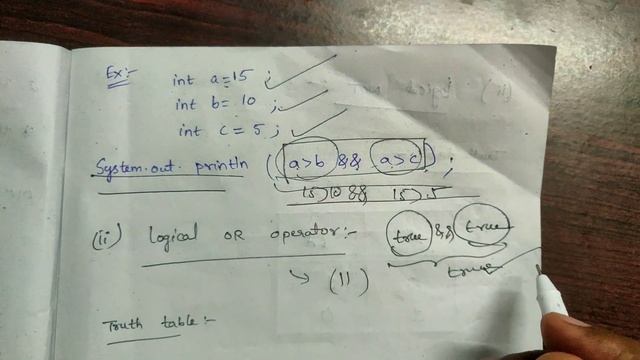 Ex:-
int a=15 ;
int b= 10 ;
int c = 5 ;
System.out.println ((a>b && a>c)) ;
15>10 && 15>5
(ii) Logical OR operator:-
true && true
true
→ (||)
Truth table:-